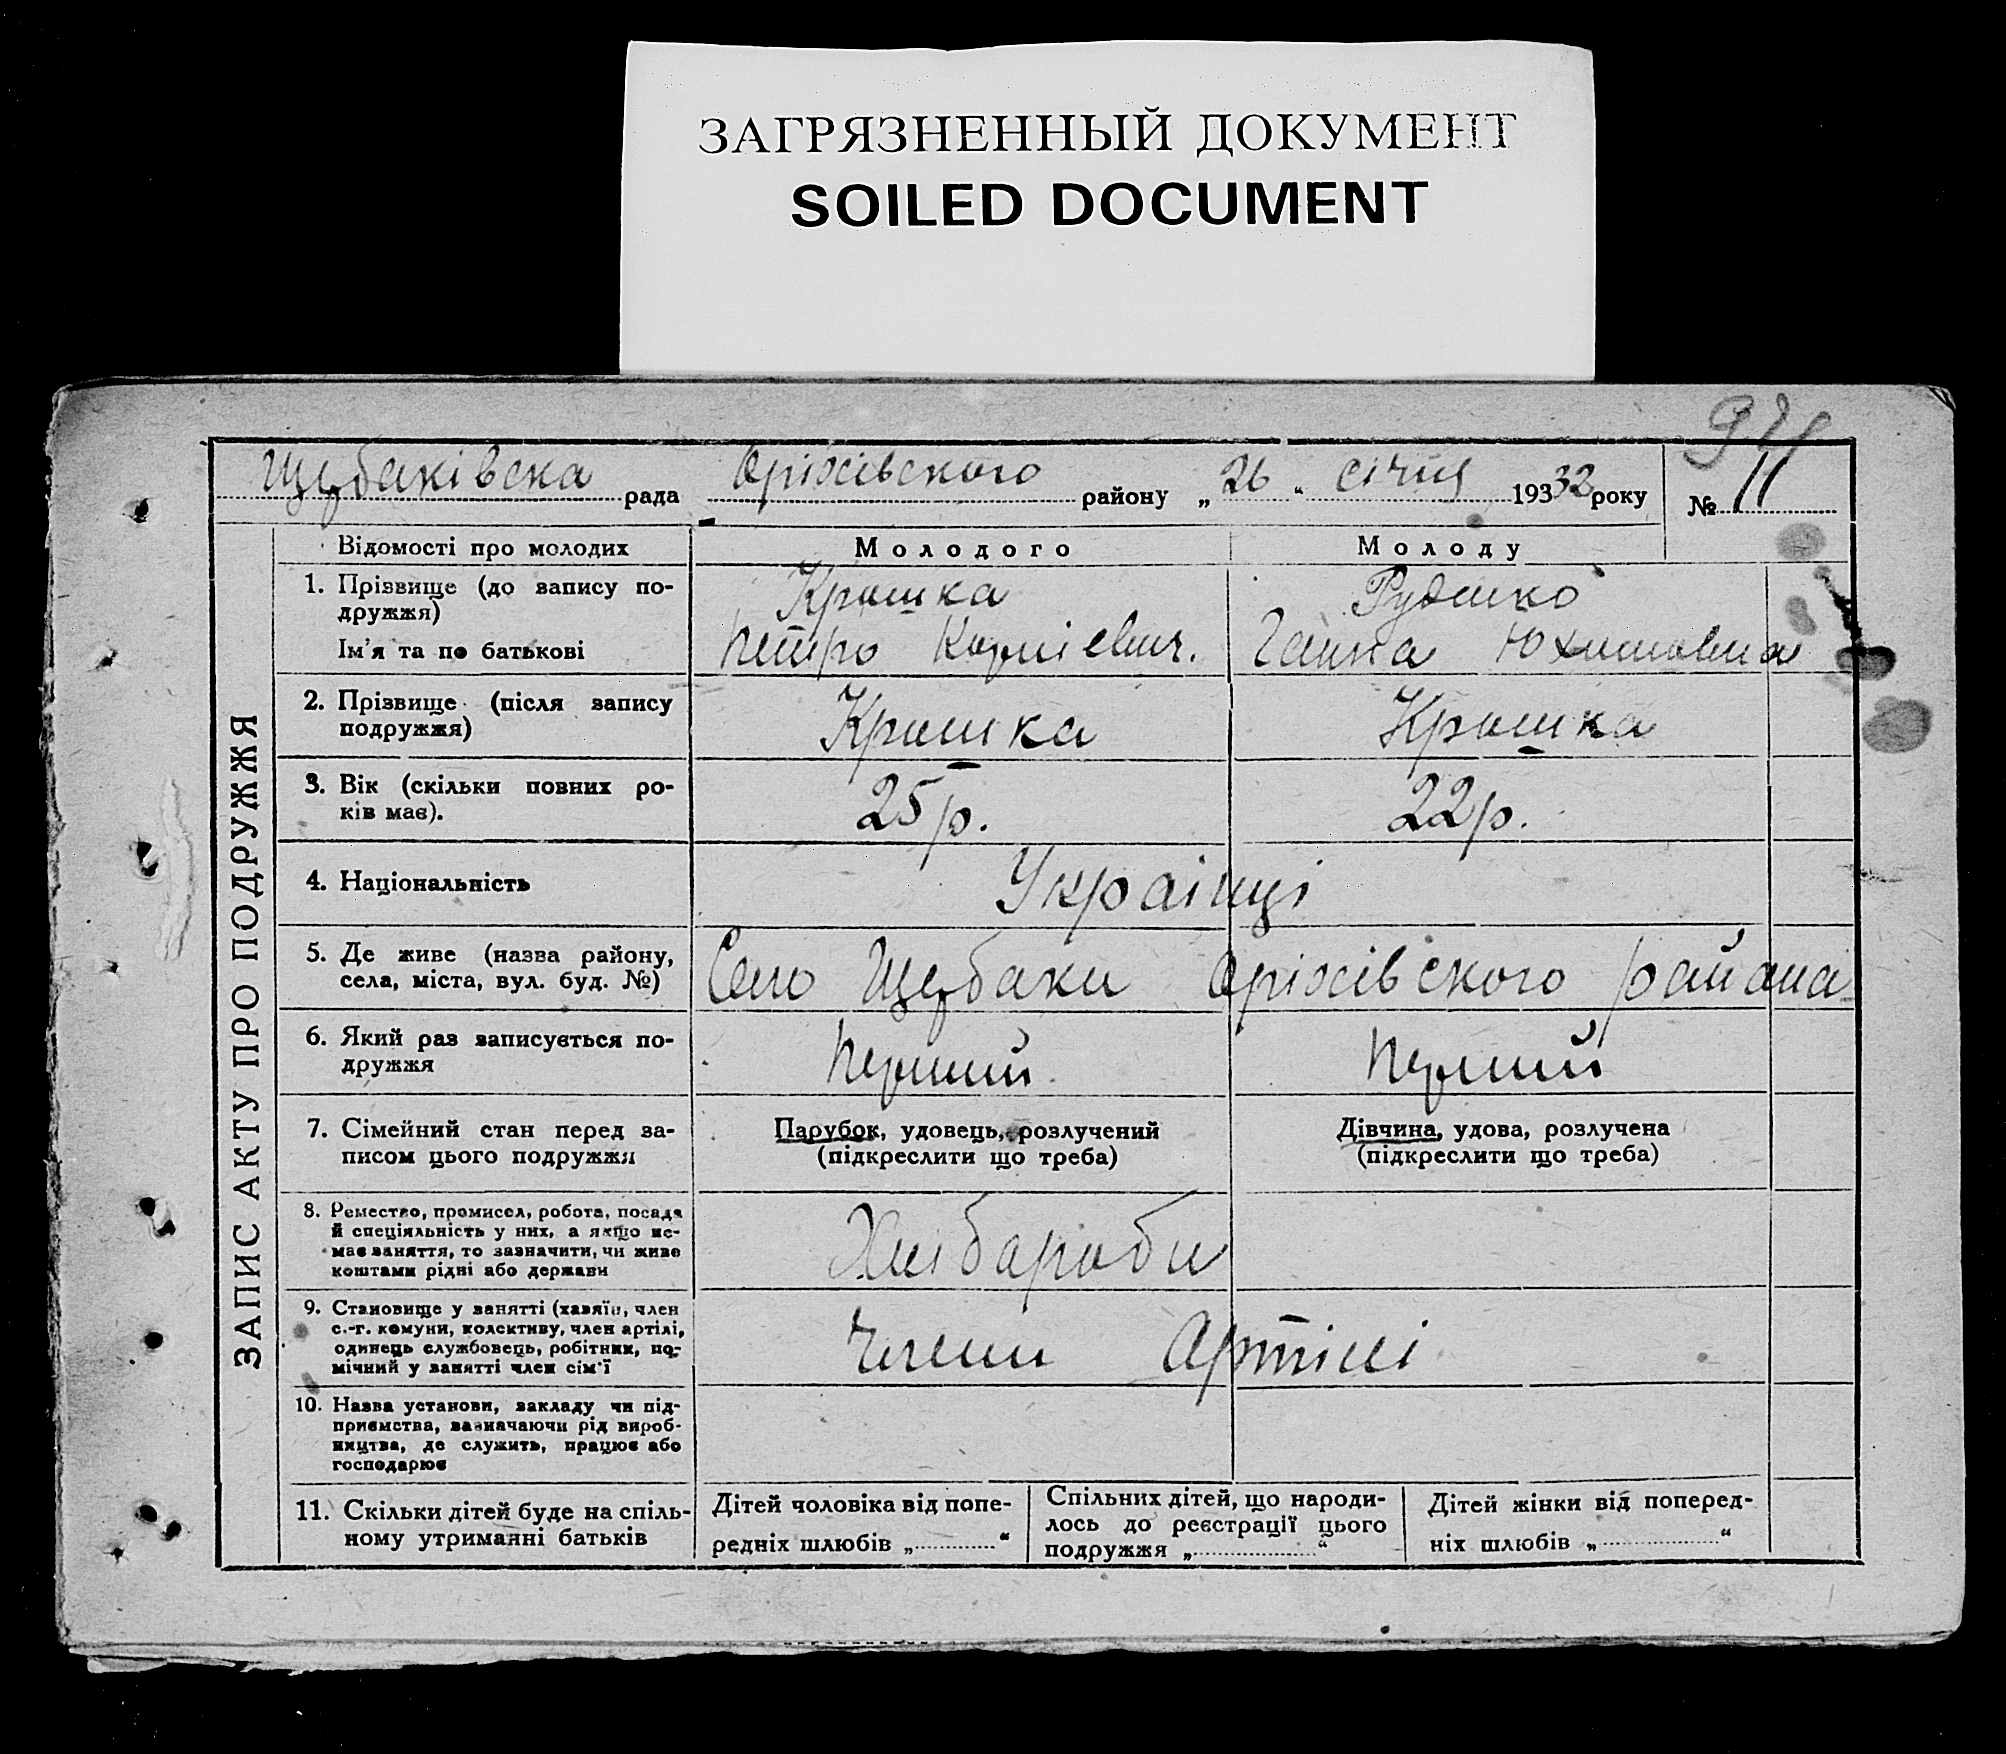 ЗАГРЯЗНЕННЫЙ ДОКУМЕНТ
SOILED DOCUMENT
Щербаківська рада Оріхівського району „26“ січня 19332 року № 11
ЗАПИС АКТУ ПРО ПОДРУЖЖЯ
Відомості про молодих Молодого Молоду
1. Прізвище (до запису по-
дружжя)
Крошка Руденко
Ім'я та по батькові Петро Корнієвич. Ганна Юхимовна
2. Прізвище (після запису
подружжя)
Крошка Крошка
3. Вік (скільки повних ро-
ків має).
25 р. 22 р.
4. Національність Українці
5. Де живе (назва району,
села, міста, вул. буд. №)
Село Щербаки Оріхівського района
6. Який раз записується по-
дружжя
Перший Перший
7. Сімейний стан перед за-
писом цього подружжя
Парубок, удовець, розлучений
(підкреслити що треба)
Дівчина, удова, розлучена
(підкреслити що треба)
8. Ремество, промисел, робота, посада
й спеціяльність у них, а якщо не-
має заняття, то зазначити, чи живе
коштами рідні або держави
Хлібароби
9. Становище у занятті (хазяїн, член
с.-г. комуни, колективу, член артілі,
одинець службовець, робітник, по-
мічний у занятті член сім'ї
Члени Артілі
10. Назва установи, закладу чи під-
приємства, зазначаючи рід вироб-
ництва, де служить, працює або
господарює
11. Скільки дітей буде на спіль-
ному утриманні батьків
Дітей чоловіка від попе-
редніх шлюбів „ “
Спільних дітей, що народи-
лось до реєстрації цього
подружжя „ “
Дітей жінки від поперед-
ніх шлюбів „ “